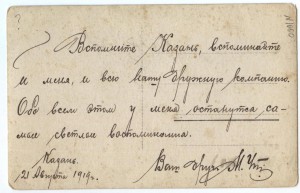 Вспомните Казань, вспоминайте
и меня, и всю нашу дружную компанию.
Обо всем этом у меня останутся са-
мые светлые воспоминания.
Казань.
21 Августа 1919 г.
Ваш друг М.